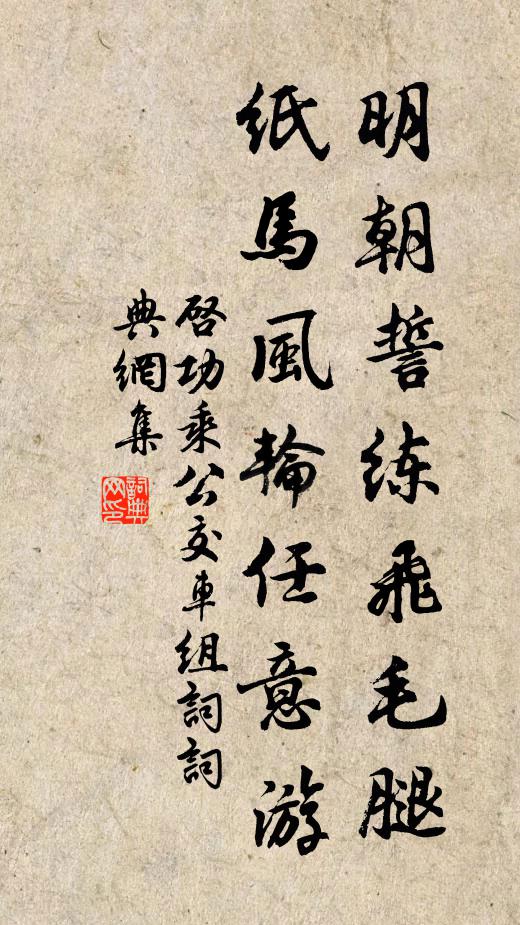 明朝誓练飛毛腿
紙馬風輪任意游
啓功乘公交車组詞詞
典網集
詞典
网印